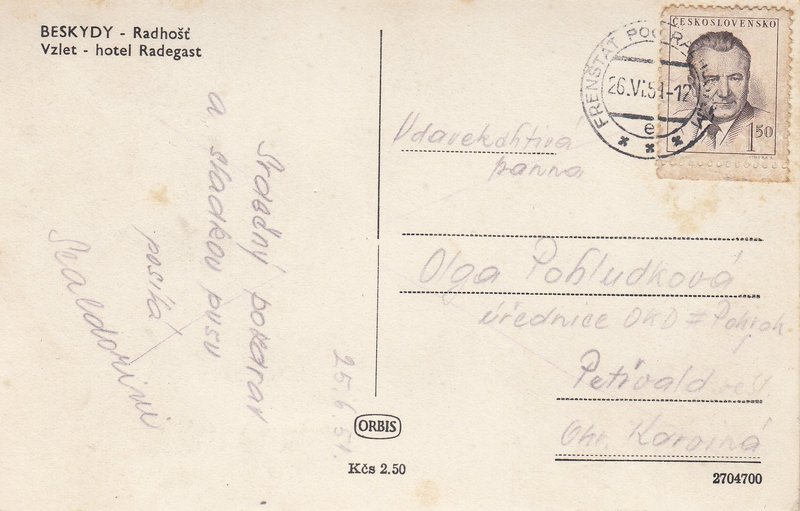 BESKYDY - Radhošť
Vzlet - hotel Radegast
Srdečný pozdrav
a sladkou pusu
posílá
25.6.51.
ORBIS
Kčs 2.50
ČESKOSLOVENSKO
1 50
FRENŠTÁT POD RADHOŠTĚM
26.VI.51-12
e
Vdavekchtivá
panna
Olga Pohludková
úřednice OKD =
Petřvald
Okr. Karviná
2704700